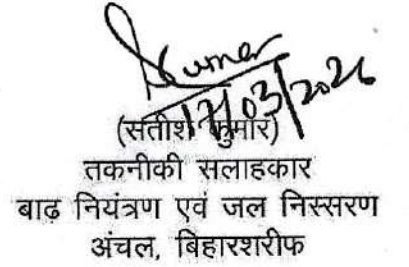 Skumar
17/03/2026
(सतीश कुमार)
तकनीकी सलाहकार
बाढ़ नियंत्रण एवं जल निस्सरण
अंचल, बिहारशरीफ